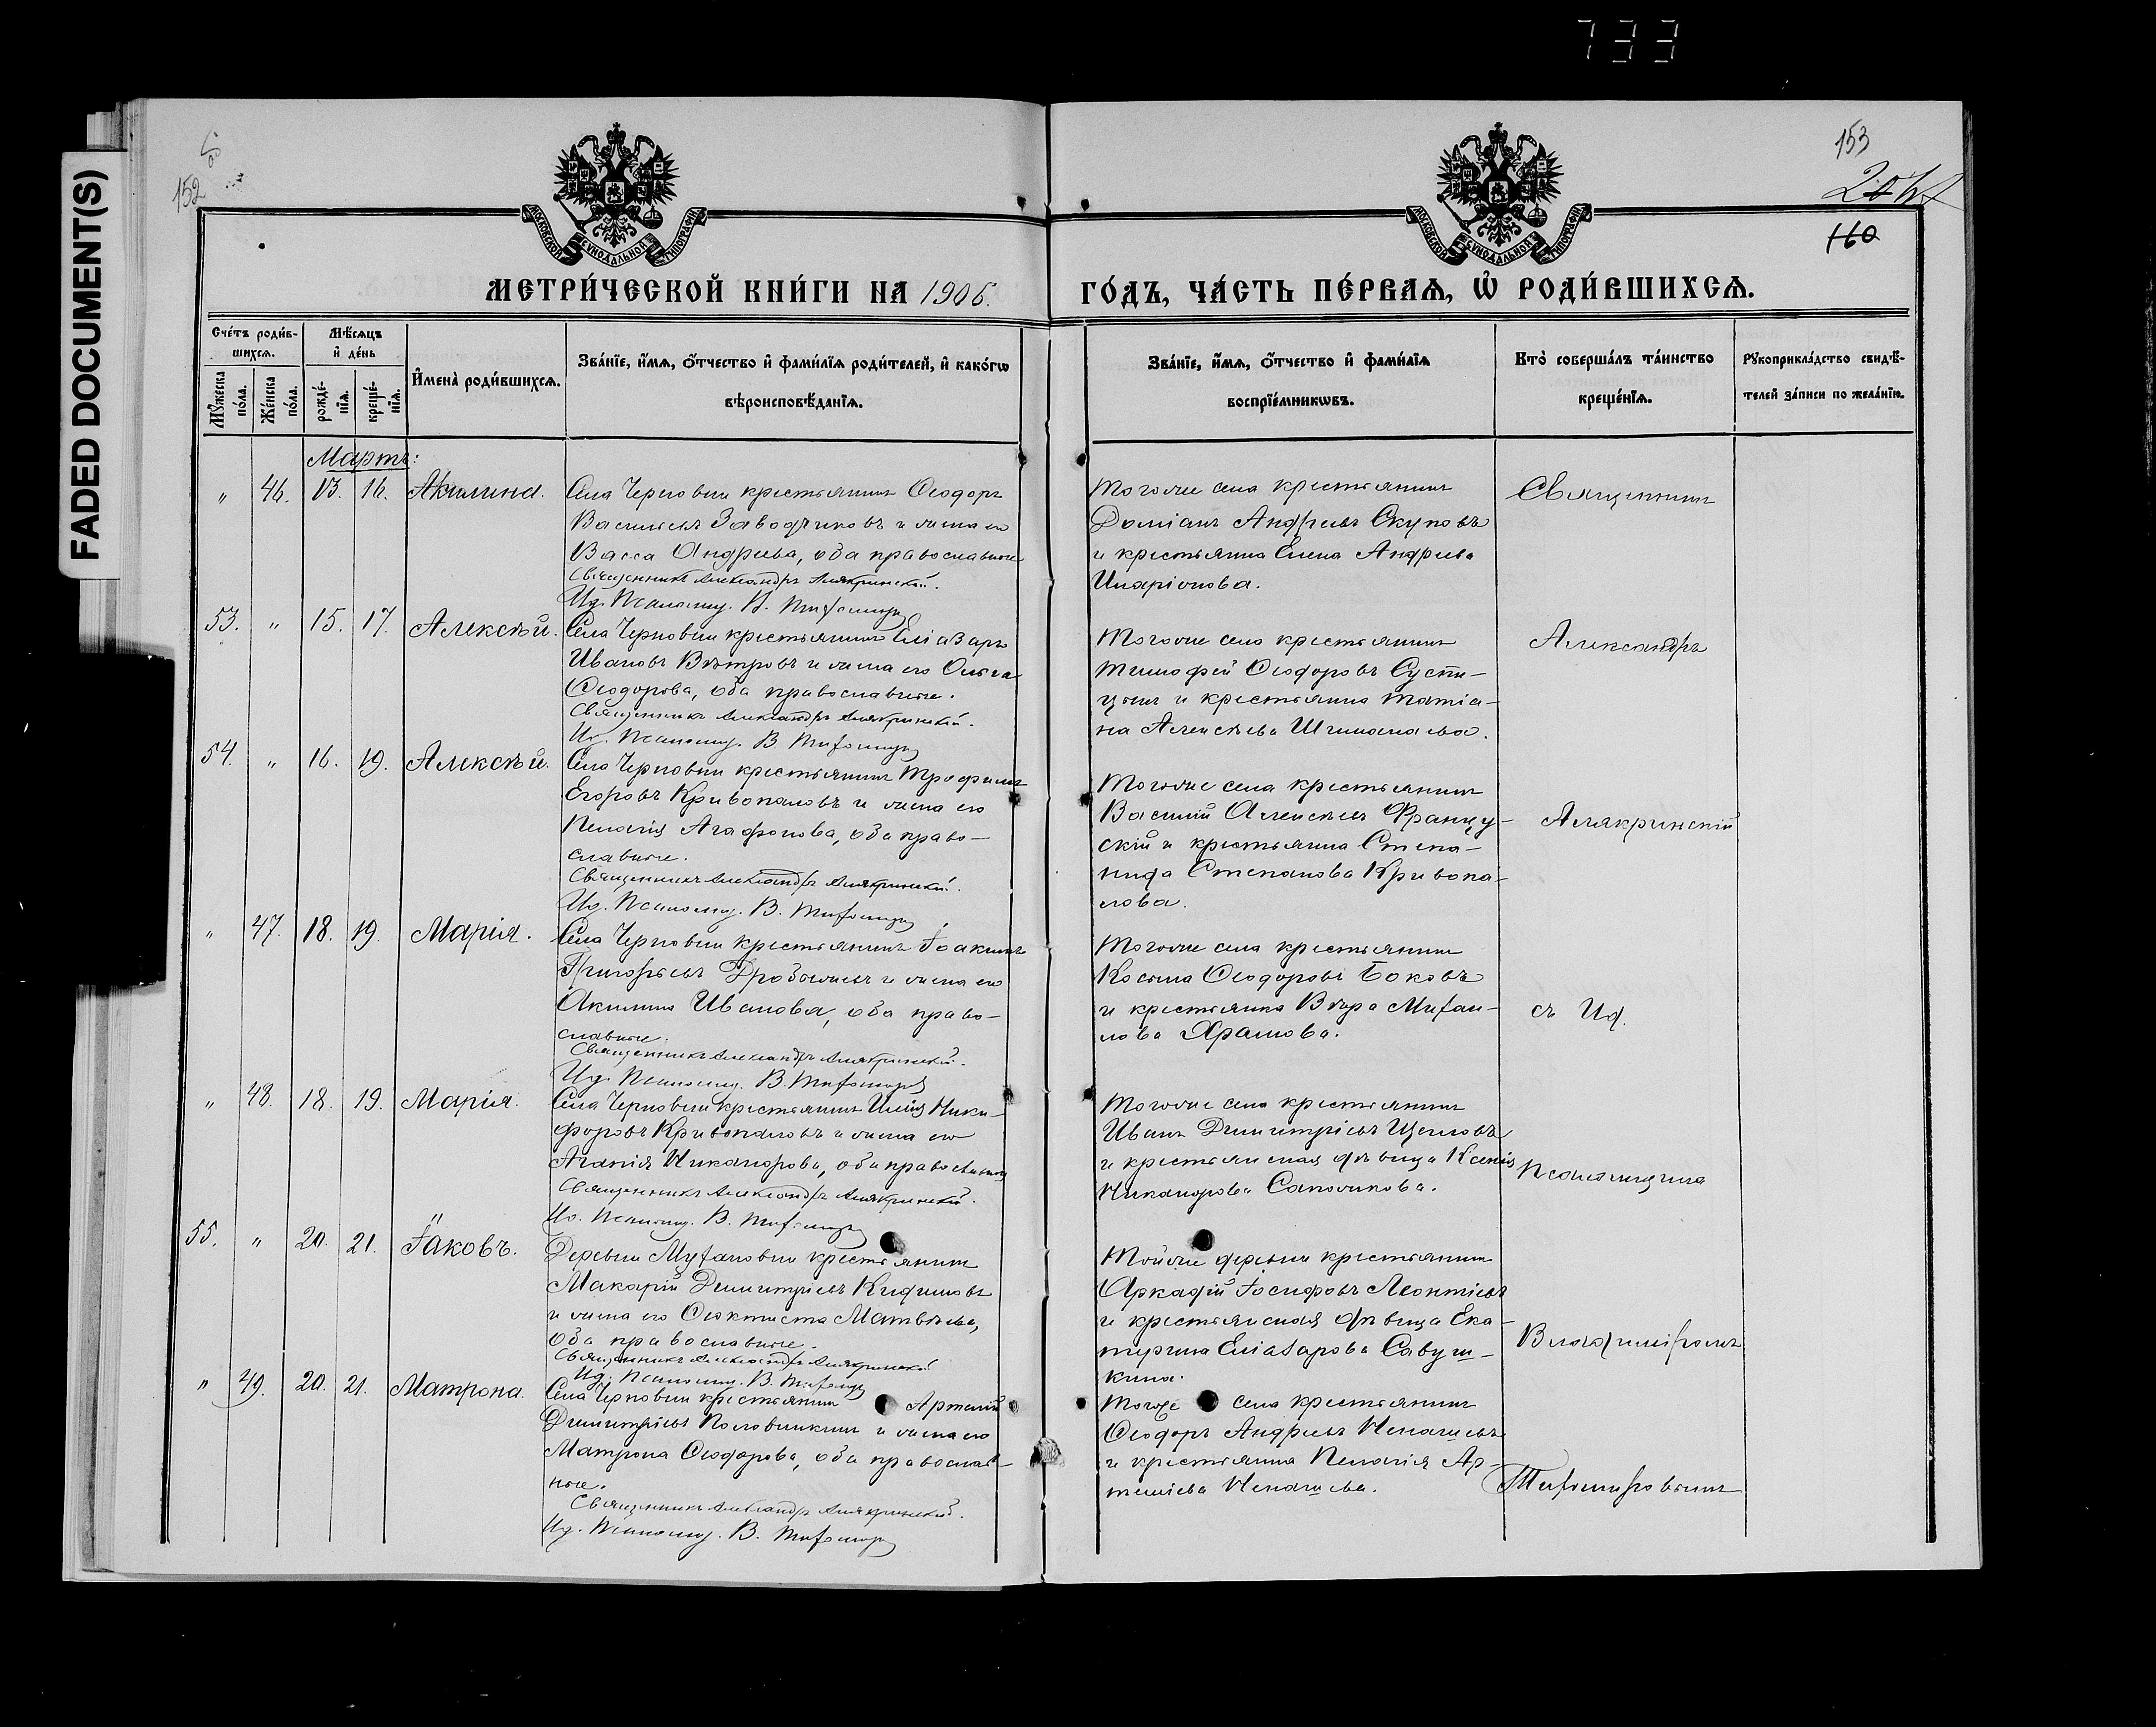 733
FADED DOCUMENT(S)
152
153
160
МОСКОВСКОЙ СУНОДАЛЬНОЙ ТИПОГРАФІИ
МОСКОВСКОЙ СУНОДАЛЬНОЙ ТИПОГРАФІИ
МЕТРИ́ЧЕСКОЙ КНИ́ГИ НА 1906.
ГО́ДЪ, ЧА́СТЬ ПЕ́РВАѦ, Ѡ҆ РОДИ́ВШИХСѦ.
Сче́тъ роди́в-
шихсѧ.
Мꙋ́жеска по́ла.
Же́нска по́ла.
Мѣ́сѧцъ
и҆ де́нь
рожде́-
нїѧ.
креще́-
нїѧ.
И҆мена̀ роди́вшихсѧ.
Зва́нїе, и҆́мѧ, ѻ҆́тчество и҆ фами́лїѧ роди́телей, и҆ како́гѡ
вѣроисповѣ́данїѧ.
Зва́нїе, и҆́мѧ, ѻ҆́тчество и҆ фами́лїѧ
воспрїе́мникѡвъ.
Кто̀ соверша́лъ та́инство
креще́нїѧ.
Рꙋкоприкла́дство свидѣ́-
телей за́писи по жела́нїю.
Мартъ:
" 46. 13. 16. Акилина.
Села Черновки крестьянинъ Ѳеодоръ
Васильевъ Заводчиковъ и жена его
Васса Андреева, оба православные
Священникъ Александръ Алякринскій.
Ид. Псаломщ. В. Тихомиръ
Тогоже села крестьянинъ
Доміанъ Андреевъ Скуповъ
и крестьянка Елена Андреева
Иларіонова.
Священникъ
53. " 15. 17. Алексѣй.
Села Черновки крестьянинъ Еліазаръ
Ивановъ Вѣтровъ и жена его Ольга
Ѳеодорова, оба православные.
Священникъ Александръ Алякринскій.
Ид. Псаломщ. В. Тихомиръ
Тогоже села крестьянинъ
Тимофей Ѳеодоровъ Сусти-
и крестьянка Татіа-
на Алексѣева
Александръ
54. " 16. 19. Алексѣй.
Села Черновки крестьянинъ Трофимъ
Егоровъ Кривопаловъ и жена его
Пелагія Агафонова, оба право-
славные.
Священникъ Александръ Алякринскій.
Ид. Псаломщ. В. Тихомиръ
Тогоже села крестьянинъ
Василій Алексѣевъ Францу-
скій и крестьянка Степа-
нида Степанова Кривопа-
лова.
Алякринскій
" 47. 18. 19. Марія.
Села Черновки крестьянинъ Іоакимъ
Григорьевъ и жена его
Акилина Иванова, оба право-
славные.
Священникъ Александръ Алякринскій.
Ид. Псаломщ. В. Тихомиръ
Тогоже села крестьянинъ
Косьма Ѳеодоровъ Боковъ
и крестьянка Вѣра Михаи-
лова Храмова.
съ Ид.
" 48. 18. 19. Марія.
Села Черновки крестьянинъ Илія Ники-
форовъ Кривопаловъ и жена его
Агапія Никанорова, оба православные
Священникъ Александръ Алякринскій.
Ид. Псаломщ. В. Тихомиръ
Тогоже села крестьянинъ
Иванъ Димитріевъ Щегловъ
и крестьянская дѣвица Ксенія
Никанорова Сапожникова.
Псаломщика
55. " 20. 21. Іаковъ.
Деревни Мухановки крестьянинъ
Макарій Димитріевъ
и жена его Ѳеоктиста Матвѣева,
оба православные.
Священникъ Александръ Алякринскій
Ид. Псаломщ. В. Тихомиръ
Тойже деревни крестьянинъ
Аркадій Іосифовъ Леонтіевъ
и крестьянская дѣвица Ека-
терина Еліазарова Савуш-
кина.
Владиміромъ
" 49. 20. 21. Матрона.
Села Черновки крестьянинъ Артемій
Димитріевъ Половинкинъ и жена его
Матрона Ѳеодорова, оба православ-
ные.
Священникъ Александръ Алякринскій.
Ид. Псаломщ. В. Тихомиръ
Тогоже села крестьянинъ
Ѳеодоръ Андреевъ Ненашевъ
и крестьянка Пелагія Ар-
теміева Ненашева.
Тихомировымъ